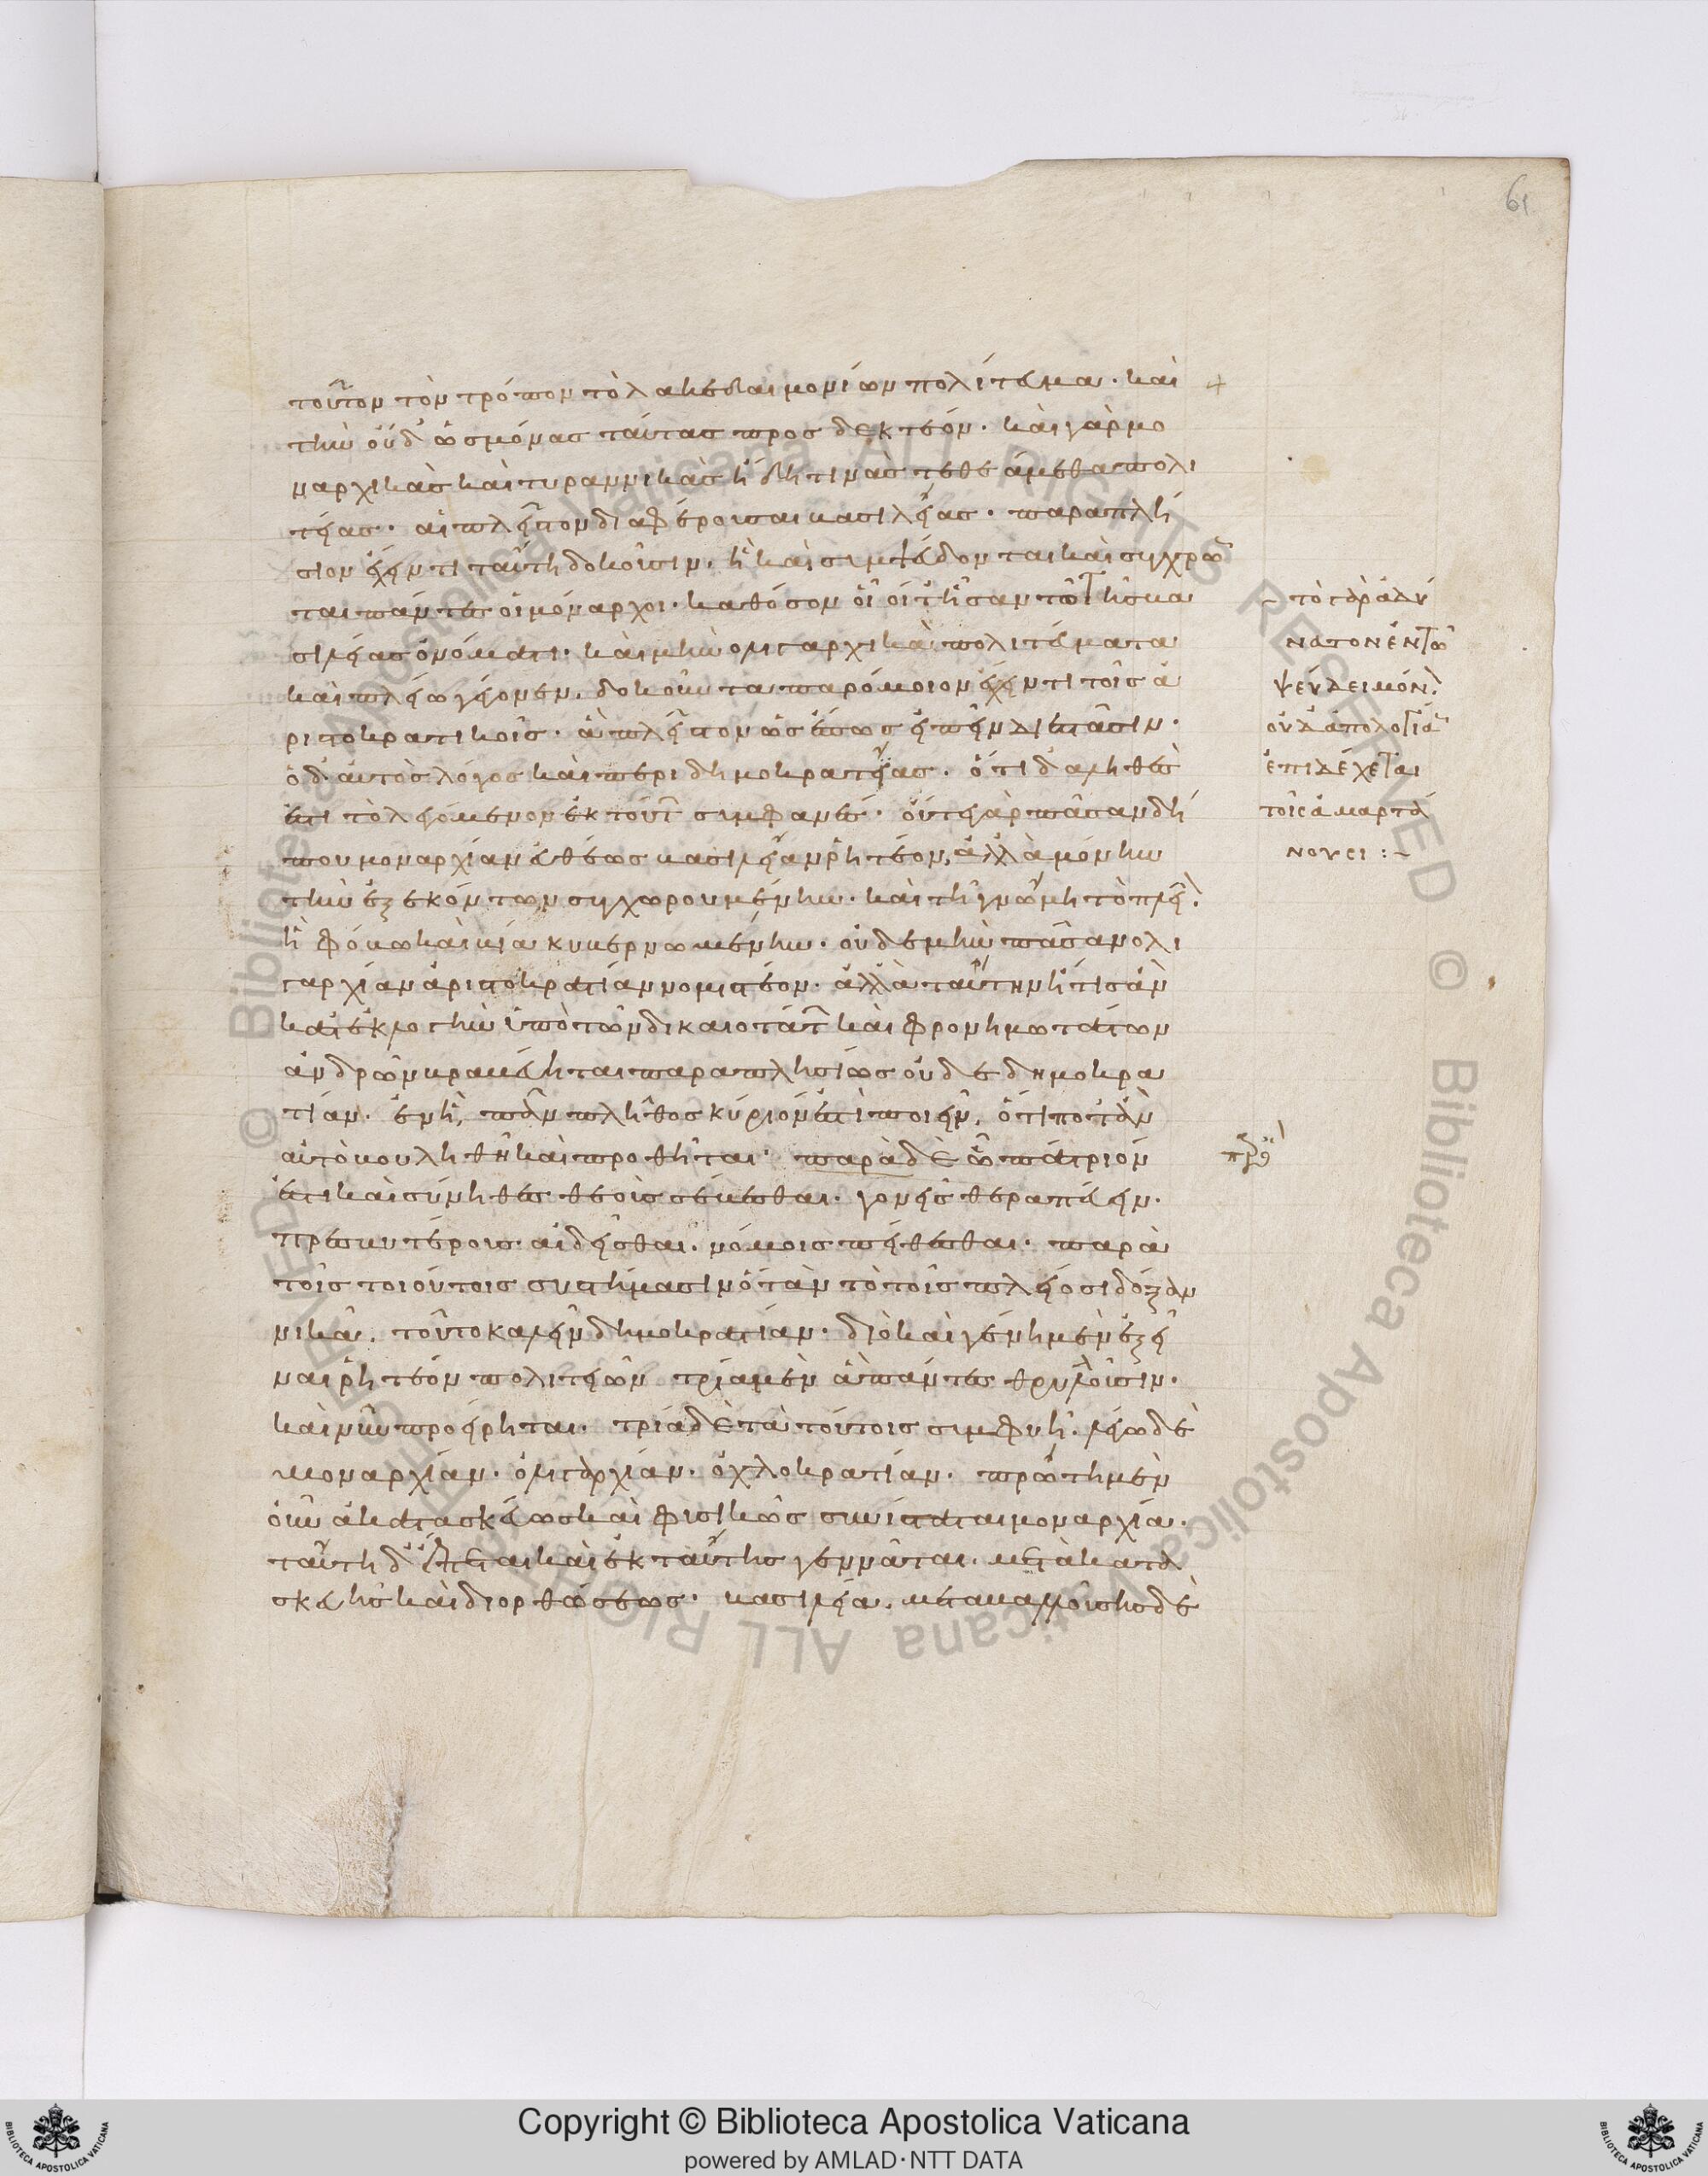 61
τοῦτον τὸν τρόπον τὸ λακεδαιμονίων πολίτευμα· καὶ
μὴν οὐδ' ὡς μόνας ταύτας προσδεκτέον· καὶ γὰρ μο
ναρχικὰς καὶ τυραννικὰς ἤδη τινὰς τεθεάμεθα πολι
τείας· αἳ πλεῖστον διαφέρουσαι βασιλείας· παραπλή
σιον ἔχειν τι ταύτῃ δοκοῦσιν. ἧι καὶ συμψεύδονται καὶ συγχρῶν
ται πάντες οἱ μόναρχοι· καθόσον οἷοί τ' εἰσὶν τῶ τῆς βα
σιλείας ὀνόματι· καὶ μὴν ὀλιγαρχικὰ πολιτεύματα
καὶ πλείω γέγονεν. δοκοῦντα παρόμοιον ἔχειν τι τοῖς ἀ
ριστοκρατικοῖς· ἃ πλεῖστον ὡς ἔπος εἰπεῖν διεστᾶσιν·
ὁ δ' αὐτὸς λόγος καὶ περὶ δημοκρατείας· ὅτι δ' ἀληθές
ἐστι τὸ λεγόμενον ἐκ τούτων συμφανές· οὔτε γὰρ πᾶσαν δή
που μοναρχίαν εὐθέως βασιλείαν ῥητέον, ἀλλὰ μόνην
τὴν ἐξ ἑκόντων συγχωρουμένην· καὶ τῇ γνώμῃ τὸ πλεῖον
ἢ φόβω καὶ βίᾳ κυβερνωμένην· οὐδὲ μὴν πᾶσαν ὀλι
γαρχίαν ἀριστοκρατίαν νομιστέον· ἀλλὰ ταύτην ἥτις ἂν
κατ' ἐκλογὴν ὑπὸ τῶν δικαιοτάτων καὶ φρονιμωτάτων
ἀνδρῶν βραβεύηται παραπλησίως οὐδὲ δημοκρα
τίαν· ἐν ἧ, πᾶν πλῆθος κύριόν ἐστι ποιεῖν, ὅτι ποτ' ἂν
αὐτὸ βουληθῆ καὶ προθῆται· παρὰ δὲ ὧ πάτριόν
ἐστι καὶ σύνηθες θεοὺς σέβεσθαι· γονεῖς θεραπεύειν·
πρεσβυτέρους αἰδεῖσθαι· νόμοις πείθεσθαι· παρὰ
τοῖς τοιούτοις συστήμασιν ὅταν τὸ τοῖς πλείοσι δόξαν
νικᾶ. τοῦτο καλεῖν δημοκρατίαν· διὸ καὶ γένη μὲν ἓξ εἶ
ναι ῥητέον πολιτειῶν τρία μὲν ἃ πάντες θρυλοῦσιν·
καὶ νῦν προείρηται· τρία δὲ τὰ τούτοις συμφυῆ. λέγω δὲ
μοναρχίαν· ὀλιγαρχίαν· ὀχλοκρατίαν· πρώτη μὲν
οὖν ἀκατασκεύως καὶ φυσικῶς συνίσταται μοναρχία·
ταύτη δ' ἕπεται καὶ ἐκ ταύτης γεννᾶται. μετὰ κατα
σκευῆς καὶ διορθώσεως· βασιλεία. μεταβαλλούσης δὲ
τὸ γὰρ ἀδύ
νατον ἐν τῶ
ψεύδει μόν
οὐδ' ἀπολογίαν
ἐπιδέχεται
τοῖς ἁμαρτά
νουσι :~